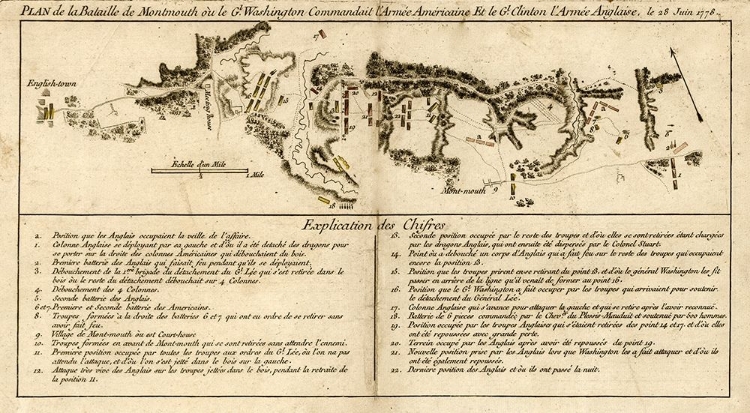 PLAN de la Bataille de Montmouth où le Gl. Washington Commandait l'Armée Américaine Et le Gl. Clinton l'Armée Anglaise, le 28 Juin 1778.
English-town
Meeting House
Echelle d'un Mile
1 Mile
Mont-mouth
Explication des Chifres
2. Position que les Anglais occupaient la veille de l'affaire.
1. Colonne Anglaise se déployant par sa gauche et d'où il a été detaché des dragons pour
se porter sur la droite des colonnes Américaines qui débouchaient du bois.
2. Premiere batterie des Anglais qui faisait feu pendant qu'ils se deployaient.
3. Débouchement de la 1ere brigade du détachement du Gl. Lée qui s'est retirée dans le
bois où le reste du détachement débouchait sur 4 Colonnes.
4. Débouchement des 4 Colonnes.
5. Seconde batterie des Anglais.
6 et 7. Premiere et Seconde Batterie des Americains.
8. Troupes formées à la droite des batteries 6 et 7 qui ont eu ordre de se retirer sans
avoir fait feu.
9. Village de Mont-mouth où est Court-house
10. Troupes formées en avant de Mont-mouth qui se sont retirées sans attendre l'ennemi.
11. Premiere position occupée par toutes les troupes aux ordres du Gl. Lée, où l'on na pas
attendu l'attaque, et d'où l'on s'est jetté dans le bois sur la gauche.
12. Attaque très vive des Anglais sur les troupes jettées dans le bois, pendant la retraite de
la position 11.
13. Seconde position occupée par le reste des troupes et d'où elles se sont retirées étant chargées
par les dragons Anglais, qui ont ensuite été dispersés par le Colonel Stuart.
14. Point où a débouché un corps d'Anglais qui a fait feu sur le reste des troupes qui occupaient
encore la position 13.
15. Position que les troupes prirent en se retirant du point 13. et d'où le général Washington les fit
passer en arriere de la ligne qu'il venait de former au point 16.
16. Position que le Gl. Washington a fait occuper par les troupes qui arrivaient pour soutenir
le détachement du Général Lée.
17. Colonne Anglais qui s'avance pour attaquer la gauche et qui se retire après l'avoir reconnue.
18. Batterie de 6 pieces commandée par le Chevr. du Plessis Mauduit et soutenue par 600 hommes.
19. Position occupée par les troupes Anglais qui s'étaient retirées des point 14 et 17. et d'où elles
ont été repoussées avec grande perte.
20. Terrein occupé par les Anglais après avoir été repoussés du point 19.
21. Nouvelle position prise par les Anglais lors que Washington les a fait attaquer et d'où ils
ont été également repoussés.
22. Derniere position des Anglais et où ils ont passé la nuit.